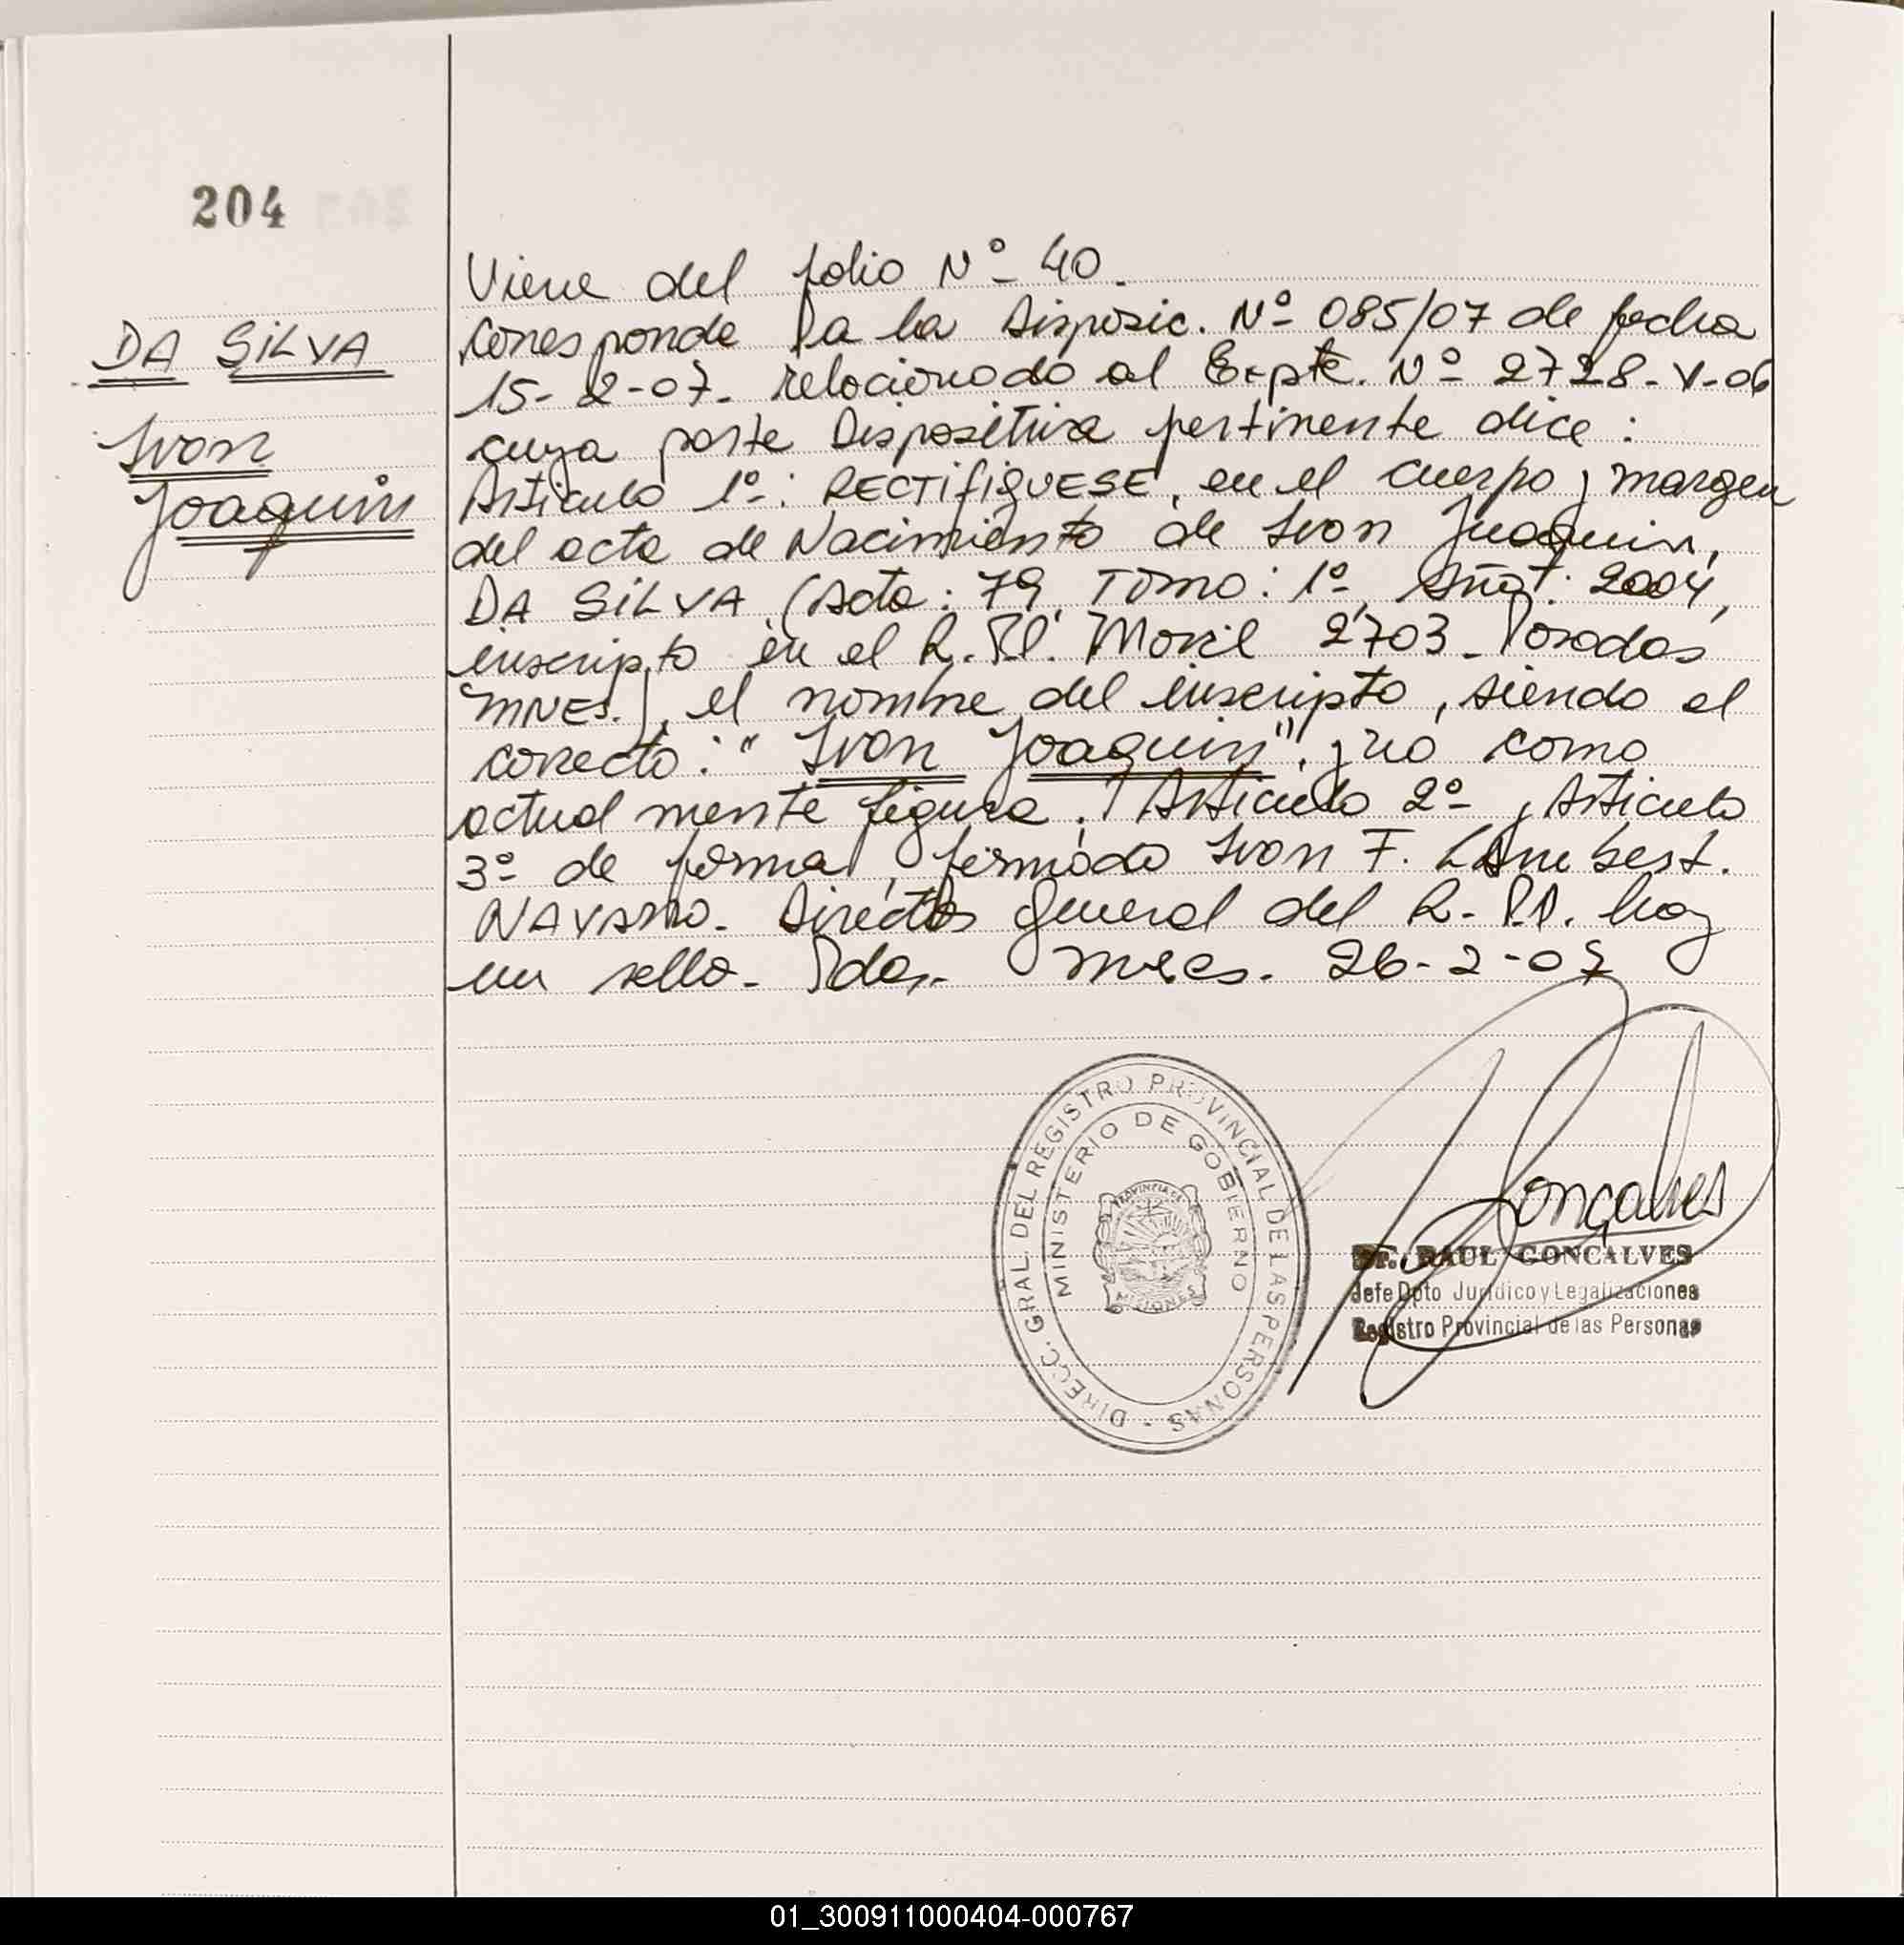 204
DA SILVA
Ivan
Joaquin
Viene del folio Nº 40.
Corresponde a la Disposic. Nº 085/07 de fecha
15-2-07. relacionado al Expte. Nº 2728-V-06
cuya parte Dispositiva pertinente dice:
Articulo 1º: RECTIFIQUESE, en el cuerpo y margen
del acta de Nacimiento de Ivan Juaquin,
DA SILVA (Acta: 79, Tomo: 1º, Año: 2004,
inscripto en el R.P.P. Movil 2703 - Posadas
MNES.), el nombre del inscripto, siendo el
correcto: "Ivan Joaquin", y no como
actualmente figura. Articulo 2º y Articulo
3º de forma, firmado Ivan F.
NAVARRO. Director General del R.P.P. hay
un sello. Pdas. Mnes. 26-2-07
DIRECC. GRAL. DEL REGISTRO PROVINCIAL DE LAS PERSONAS -
MINISTERIO DE GOBIERNO
PROVINCIA DE
MISIONES
Gonçalves
RAUL GONCALVES
Jefe Dpto Juridico y Legalizaciones
Registro Provincial de las Personas
01_300911000404-000767